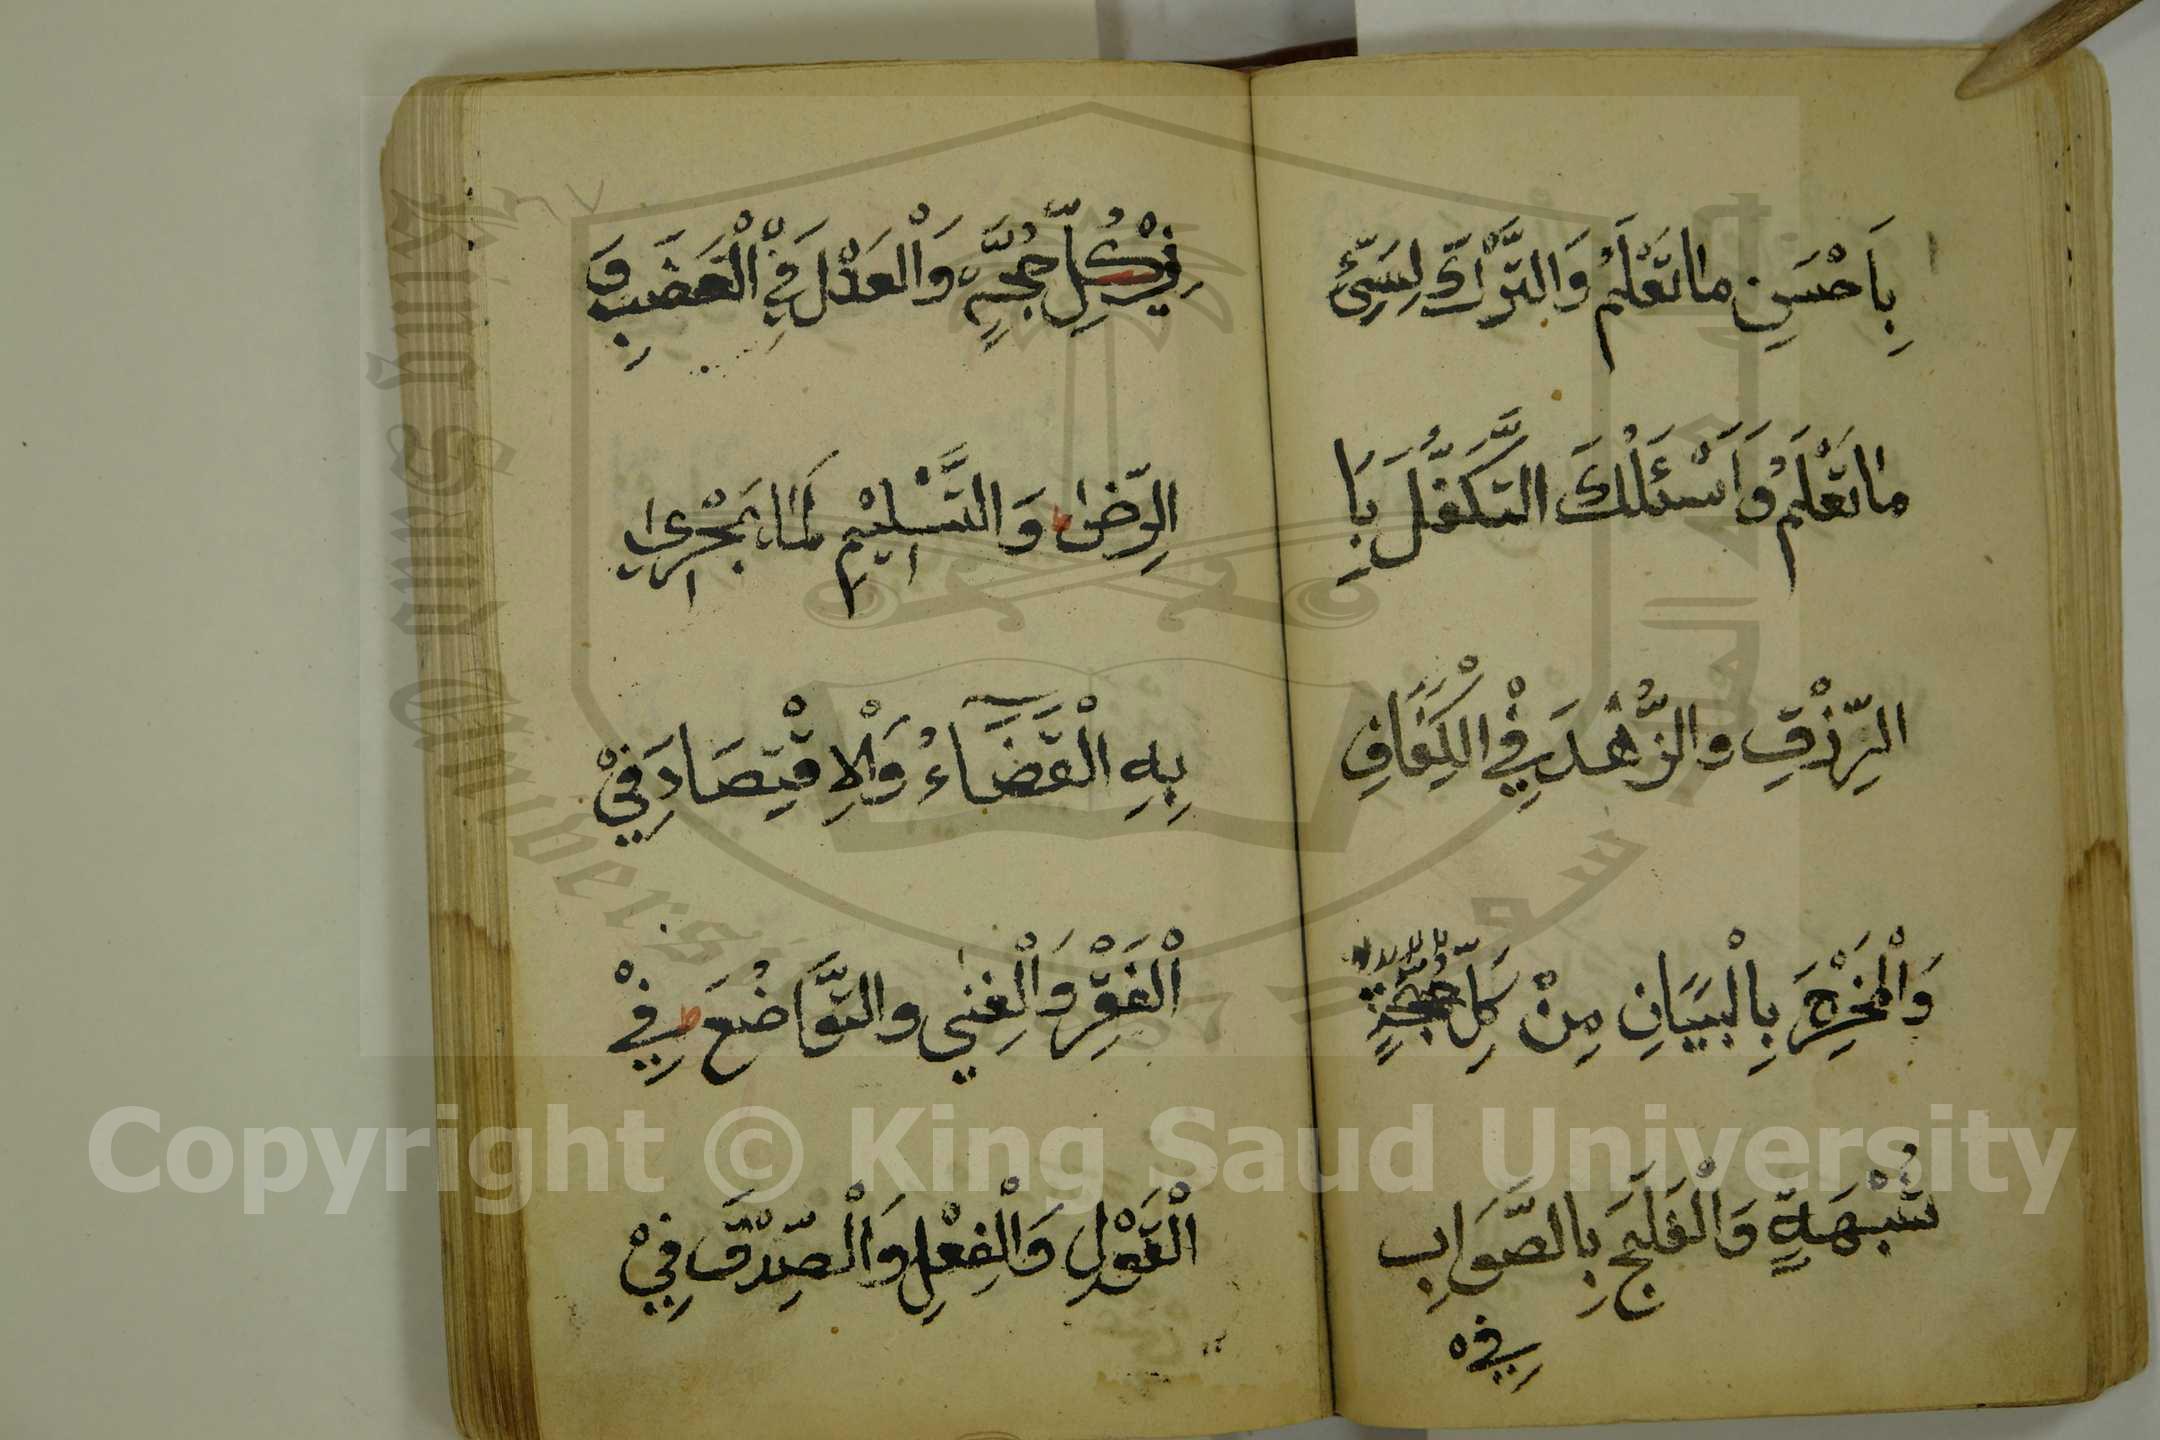 بِاَحْسَنِ مَا تَعْلَمُ وَالتَّرْكَ لِسَيِّئِ
مَا تَعْلَمُ وَاَسْئَلُكَ التَّكَفُّلَ بِا
الرِّزْقِ والزُّهْدَ فِيْ الْكَفَافِ
وَالْمَخْرِجَ بِالْبَيَانِ مِنْ كُلِّ
شُبْهَةٍ وَالْفَلَجَ بِالصَّوَابِ
فِيْ
فِيْ كُلِّ حُجَّةٍ وَالْعَدْلَ فِيْ الْغَضَبِ وَ
الرِّضٰا وَالتَّسْلِيْمِ لِمَا يَجْرِيْ
بِهِ الْقَضَآءُ وَالْاِقْتِصَادَ فِيْ
الْفَقْرِ وَالْغِنٰى والتَّوَاضُعَ فِيْ
الْقَوْلِ وَالْفِعْلِ وَالْصِّدْقَ فِيْ
King Saud University
Copyright © King Saud University